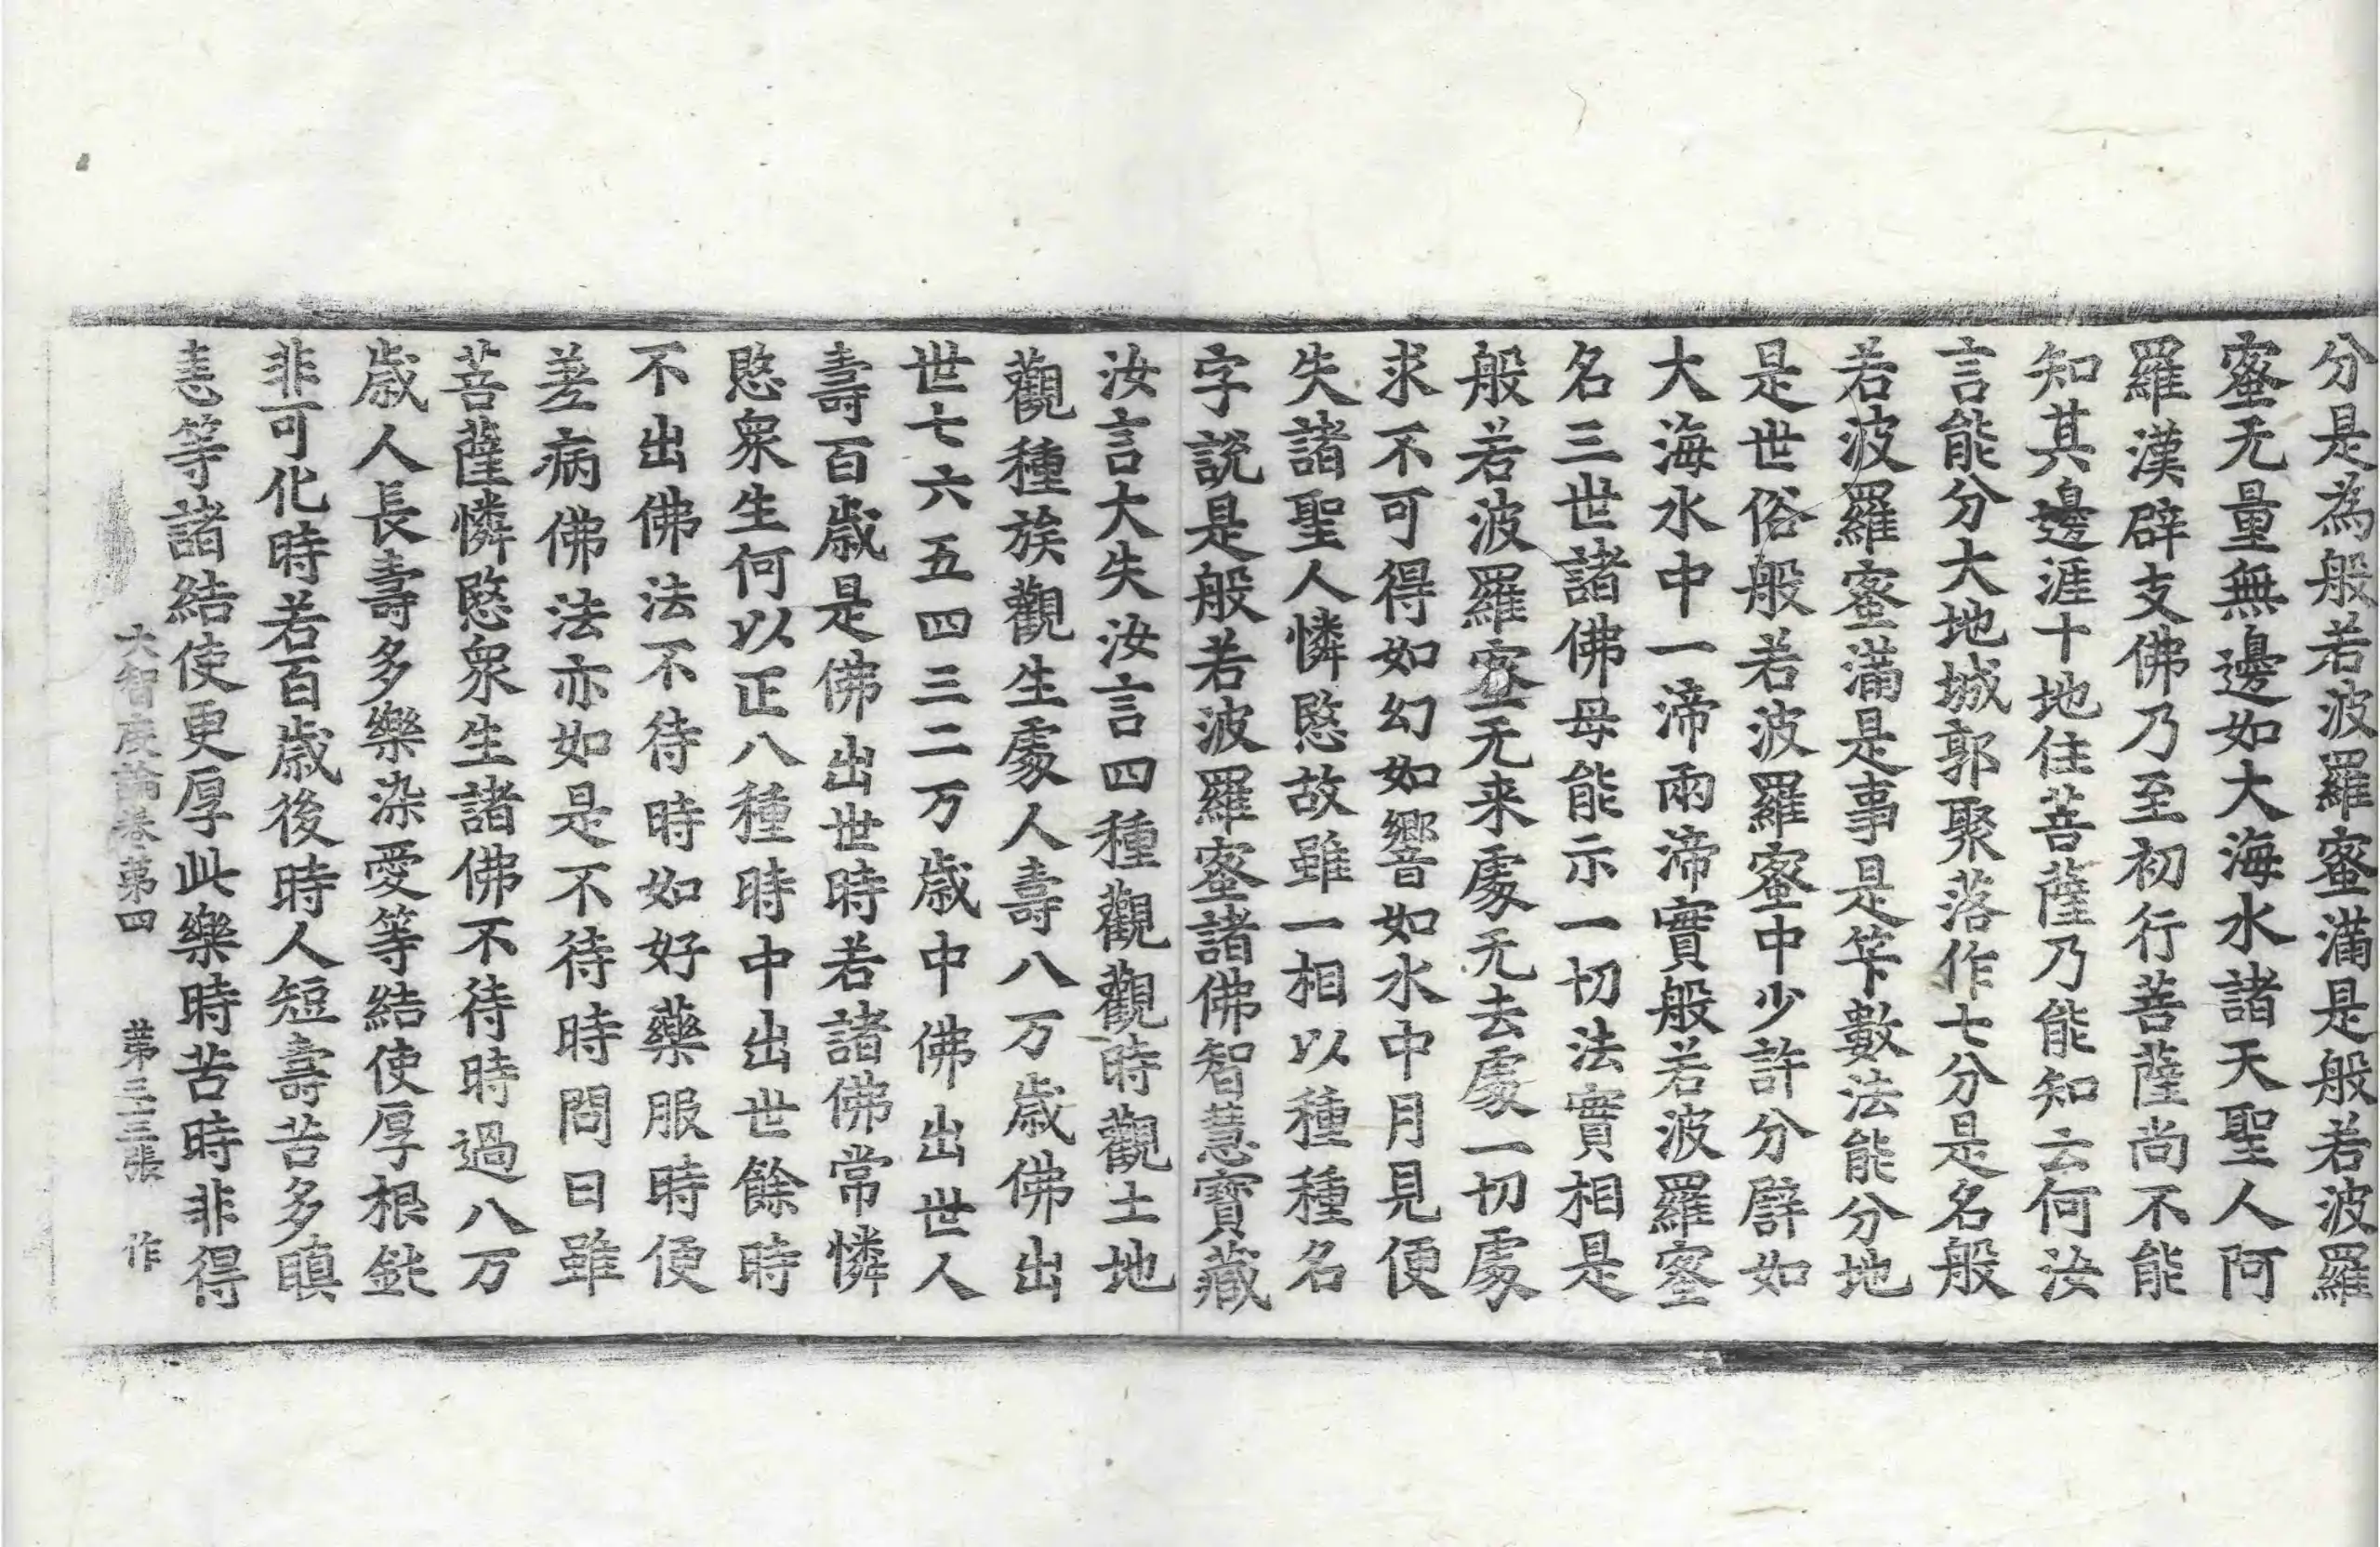 分是為般若波羅蜜滿是般若波羅
蜜无量無邊如大海水諸天聖人阿
羅漢辟支佛乃至初行菩薩尚不能
知其邊涯十地住菩薩乃能知云何汝
言能分大地城郭聚落作七分是名般
若波羅蜜滿是事是筭數法能分地
是世俗般若波羅蜜中少許分譬如
大海水中一渧兩渧實般若波羅蜜
名三世諸佛母能示一切法實相是
般若波羅蜜无来處无去處一切處
求不可得如幻如響如水中月見便
失諸聖人憐愍故雖一相以種種名
字說是般若波羅蜜諸佛智慧寶藏
汝言大失汝言四種觀觀時觀土地
觀種族觀生處人壽八万歲佛出
世七六五四三二万歲中佛出世人
壽百歲是佛出世時若諸佛常憐
愍衆生何以正八種時中出世餘時
不出佛法不待時如好藥服時便
差病佛法亦如是不待時問曰雖
菩薩憐愍衆生諸佛不待時過八万
歲人長壽多樂染愛等結使厚根鈍
非可化時若百歲後時人短壽苦多瞋
恚等諸結使更厚此樂時苦時非得
大智度論卷第四 第三三張 作